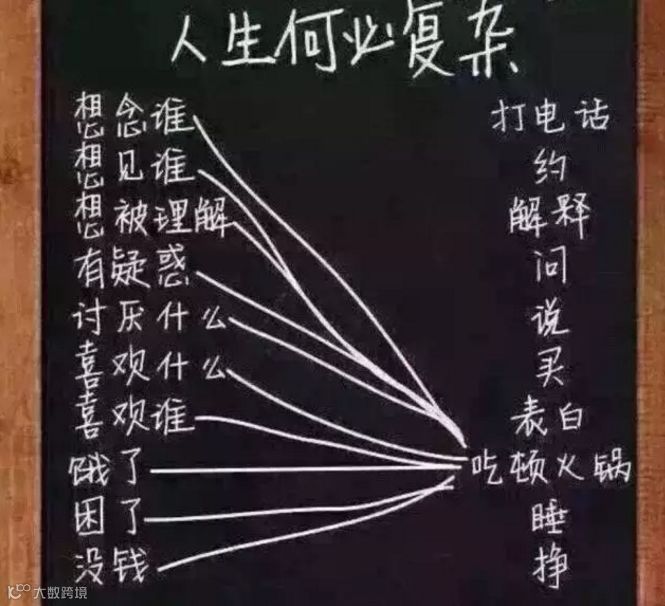 人生何必复杂
想念谁 打电话
想见谁 约
想被理解 解释
有疑惑 问
讨厌什么 说
喜欢什么 买
喜欢谁 表白
饿了 吃顿火锅
困了 睡
没钱 挣
大数跨境